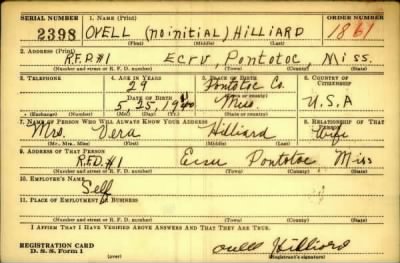 SERIAL NUMBER 1. NAME (Print) ORDER NUMBER
2398 OVELL (no initial) HILLIARD 1861
(First) (Middle) (Last)
2. ADDRESS (Print)
R.F.D.#1 Ecru, Pontotoc, Miss.
(Number and street or R. F. D. number) (Town) (County) (State)
3. TELEPHONE 4. AGE IN YEARS 5. PLACE OF BIRTH 6. COUNTRY OF CITIZENSHIP
29 Pontotoc Co.
DATE OF BIRTH (Town or county)
5, 25, Miss. U.S.A
(Exchange) (Number) (Mo.) (Day) (Yr.) (State or country)
7. NAME OF PERSON WHO WILL ALWAYS KNOW YOUR ADDRESS 8. RELATIONSHIP OF THAT PERSON
Mrs. Vera Hilliard Wife
(Mr., Mrs., Miss) (First) (Middle) (Last)
9. ADDRESS OF THAT PERSON
R.F.D.#1 Ecru Pontotoc, Miss
(Number and street or R. F. D. number) (Town) (County) (State)
10. EMPLOYER'S NAME
Self
11. PLACE OF EMPLOYMENT OR BUSINESS
(Number and street or R. F. D. number) (Town) (County) (State)
I AFFIRM THAT I HAVE VERIFIED ABOVE ANSWERS AND THAT THEY ARE TRUE.
REGISTRATION CARD Ovell Hilliard
D. S. S. Form 1 (over) (Registrant's signature)